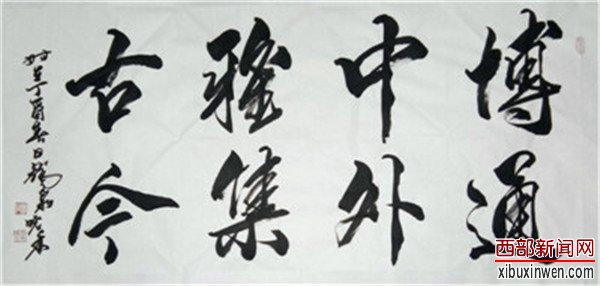 博通
中外
雅集
古今
丁酉春日
西部新闻网
xibuxinwen.com